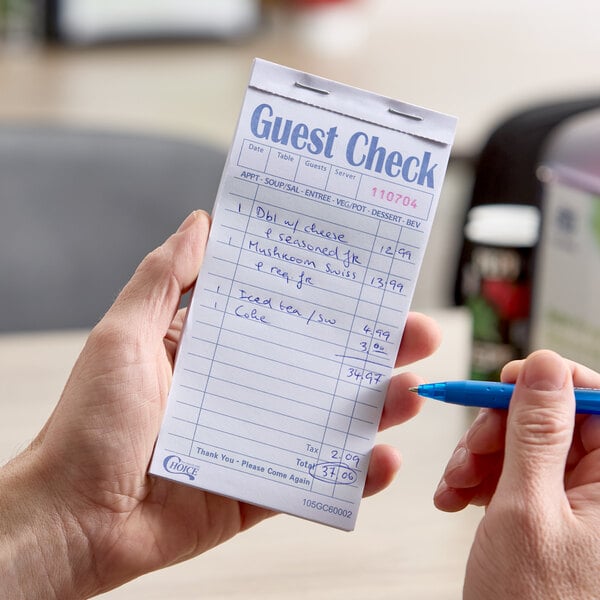 Guest Check
Date Table Guests Server
110704
APPT - SOUP/SAL - ENTREE - VEG/POT - DESSERT - BEV
1 Dbl w/ cheese
& seasoned fr 12 99
1 Mushroom Swiss
& reg fr 13 99
1 Iced tea /sw 4 99
1 Coke 3 00
34 97
Tax 2 09
Thank You - Please Come Again Total 37 06
CHOICE
105GC60002